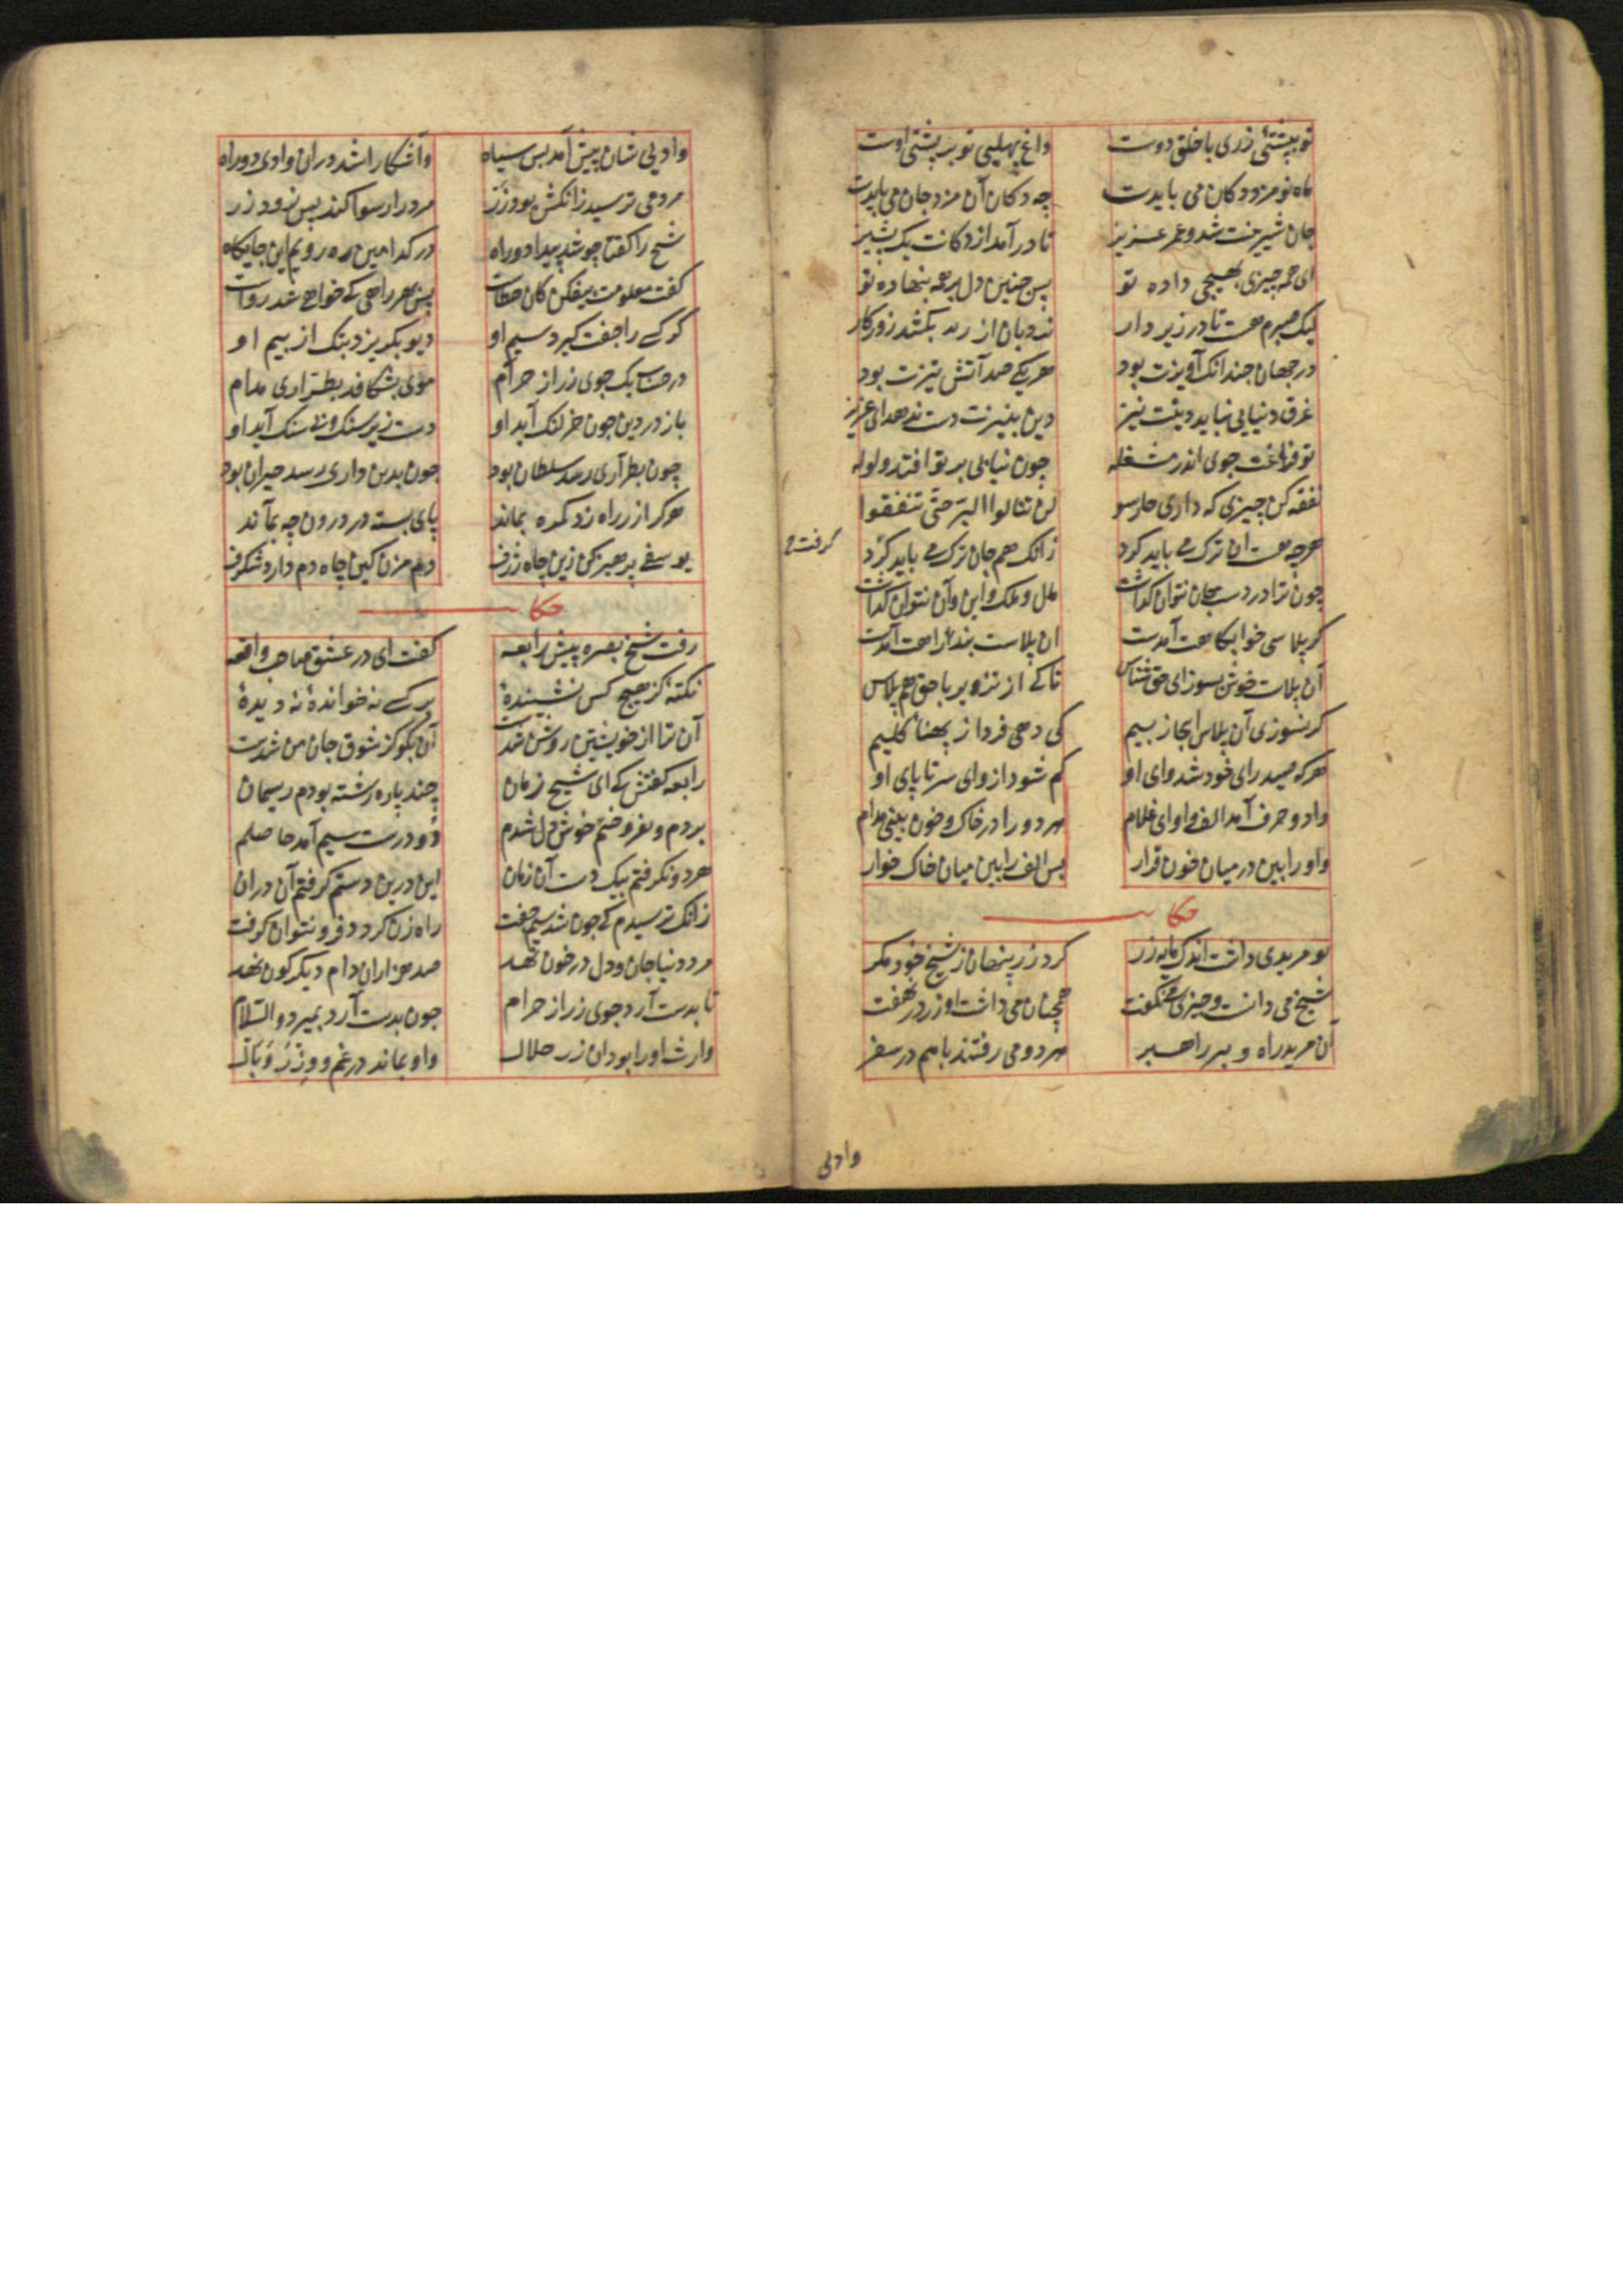 تو بپشتئ زری با خلق دوست داغ پهلیی تو بر پشتی اوست
ماه نو مزد دکان می بایدت چه دکان آن مزد جان می بایدت
جان شیرینت شد و عمر عزیز تا در آمد از دکانت یک پشیز
ای همه چیزی بهیچی داده تو پس چنین دل بر همه بنهاده تو
لیک صبرم هست تا در زیر دار نردبان از زیر بکشد روزکار
در جهان چندانک آویزت بود هر یکی صد آتش تیزت بود
غرق دنیایی نباید دینت نیز دین بنیزت دست ندهد ای عزیز
تو فراغت جوی اندر مشغله چون نیابی بر تو افتد ولوله
نفقه کن چیزی که داری چارسو لن تنالوا البر حتی تنفقوا
هرچه هست آن ترک می باید کرد زانک هم جان ترک می باید کرد
چون ترا در دست جان نتوان کذاشت مال و ملک و این و آن نتوان کذاشت
کرفت م
کر پلاسی خوابکاهت آمدت آن پلاست بند راهت آمدت
آن پلاست خوش بسوز ای حق شناس تا کی از تزویر با حق هم پلاس
کر نسوزی آن پلاس اینجا ز بیم کی رهی فردا ز پهنای کلیم
هرکه صید رای خود شد وای او کم شود از وای سر تا پای او
واو دو حرف آمد الف و او ای غلام هر دو را در خاک و خون بینی مدام
واو را بین در میان خون قرار پس الف را بین میان خاک خوار
حکا
نو مریدی داشت اندک مایه زر کرد زر پنهان ز شیخ خود مکر
شیخ می دانست و چیزی می نکفت همچنان می داشت او زر در نهفت
آن مرید راه و پیر راهبر هر دو می رفتند با هم در سفر
وادیی
وادیی شان پیش آمد بس سیاه واشکارا شد دران وادی دو راه
مرد می ترسید زانکش بود زر مرد را رسوا کند بس زود زر
شیخ را کفتا چو شد پیدا دو راه در کدامین ره رویم این جایکاه
کفت معلومت بیفکن کان خطاست پس بهر راهی که خواهی شد رواست
کر کسی را جفت کیرد سیم او دیو بکریزد بتک از بیم او
در حساب یک جوی زر از حرام موی بشکافد بطراری مدام
باز در دین چون خر لنک آید او دست زیر سنک و بی سنک آید او
چون بطراری رسد سلطان بود چون بدین داری رسد حیران بود
هرکرا زر راه زد کمره بماند پای بسته در درون چه بماند
یوسفی پرهیز کن زین چاه ژرف دم مزن کین چاه دم دارد شکرف
حکا
رفت شیخ بصره پیش رابعه کفت ای در عشق صاحب واقعه
نکته کز هیچ کس نشنیدهٔ بر کسی نه خواندهٔ نه دیدهٔ
آن ترا از خویشتن روشن شدست آن بکو کز شوق جان من شدست
رابعه کفتش که ای شیخ زمان چند پاره رشته بودم ریسمان
بردم و بفروختم خوش دل شدم دو درست سیم آمد حاصلم
هر دو نکرفتم بیک دست آن زمان این درین دستم کرفتم آن دران
زانک ترسیدم که چون شد سیم جفت راه زن کردد فرو نتوان کرفت
مرد دنیا جان و دل در خون نهد صد هزاران دام دیکرکون نهد
تا بدست آرد جوی زر از حرام چون بدست آرد بمیرد والسلام
وارث او را بود آن زر حلال واو بماند در غم و وزر و وبال